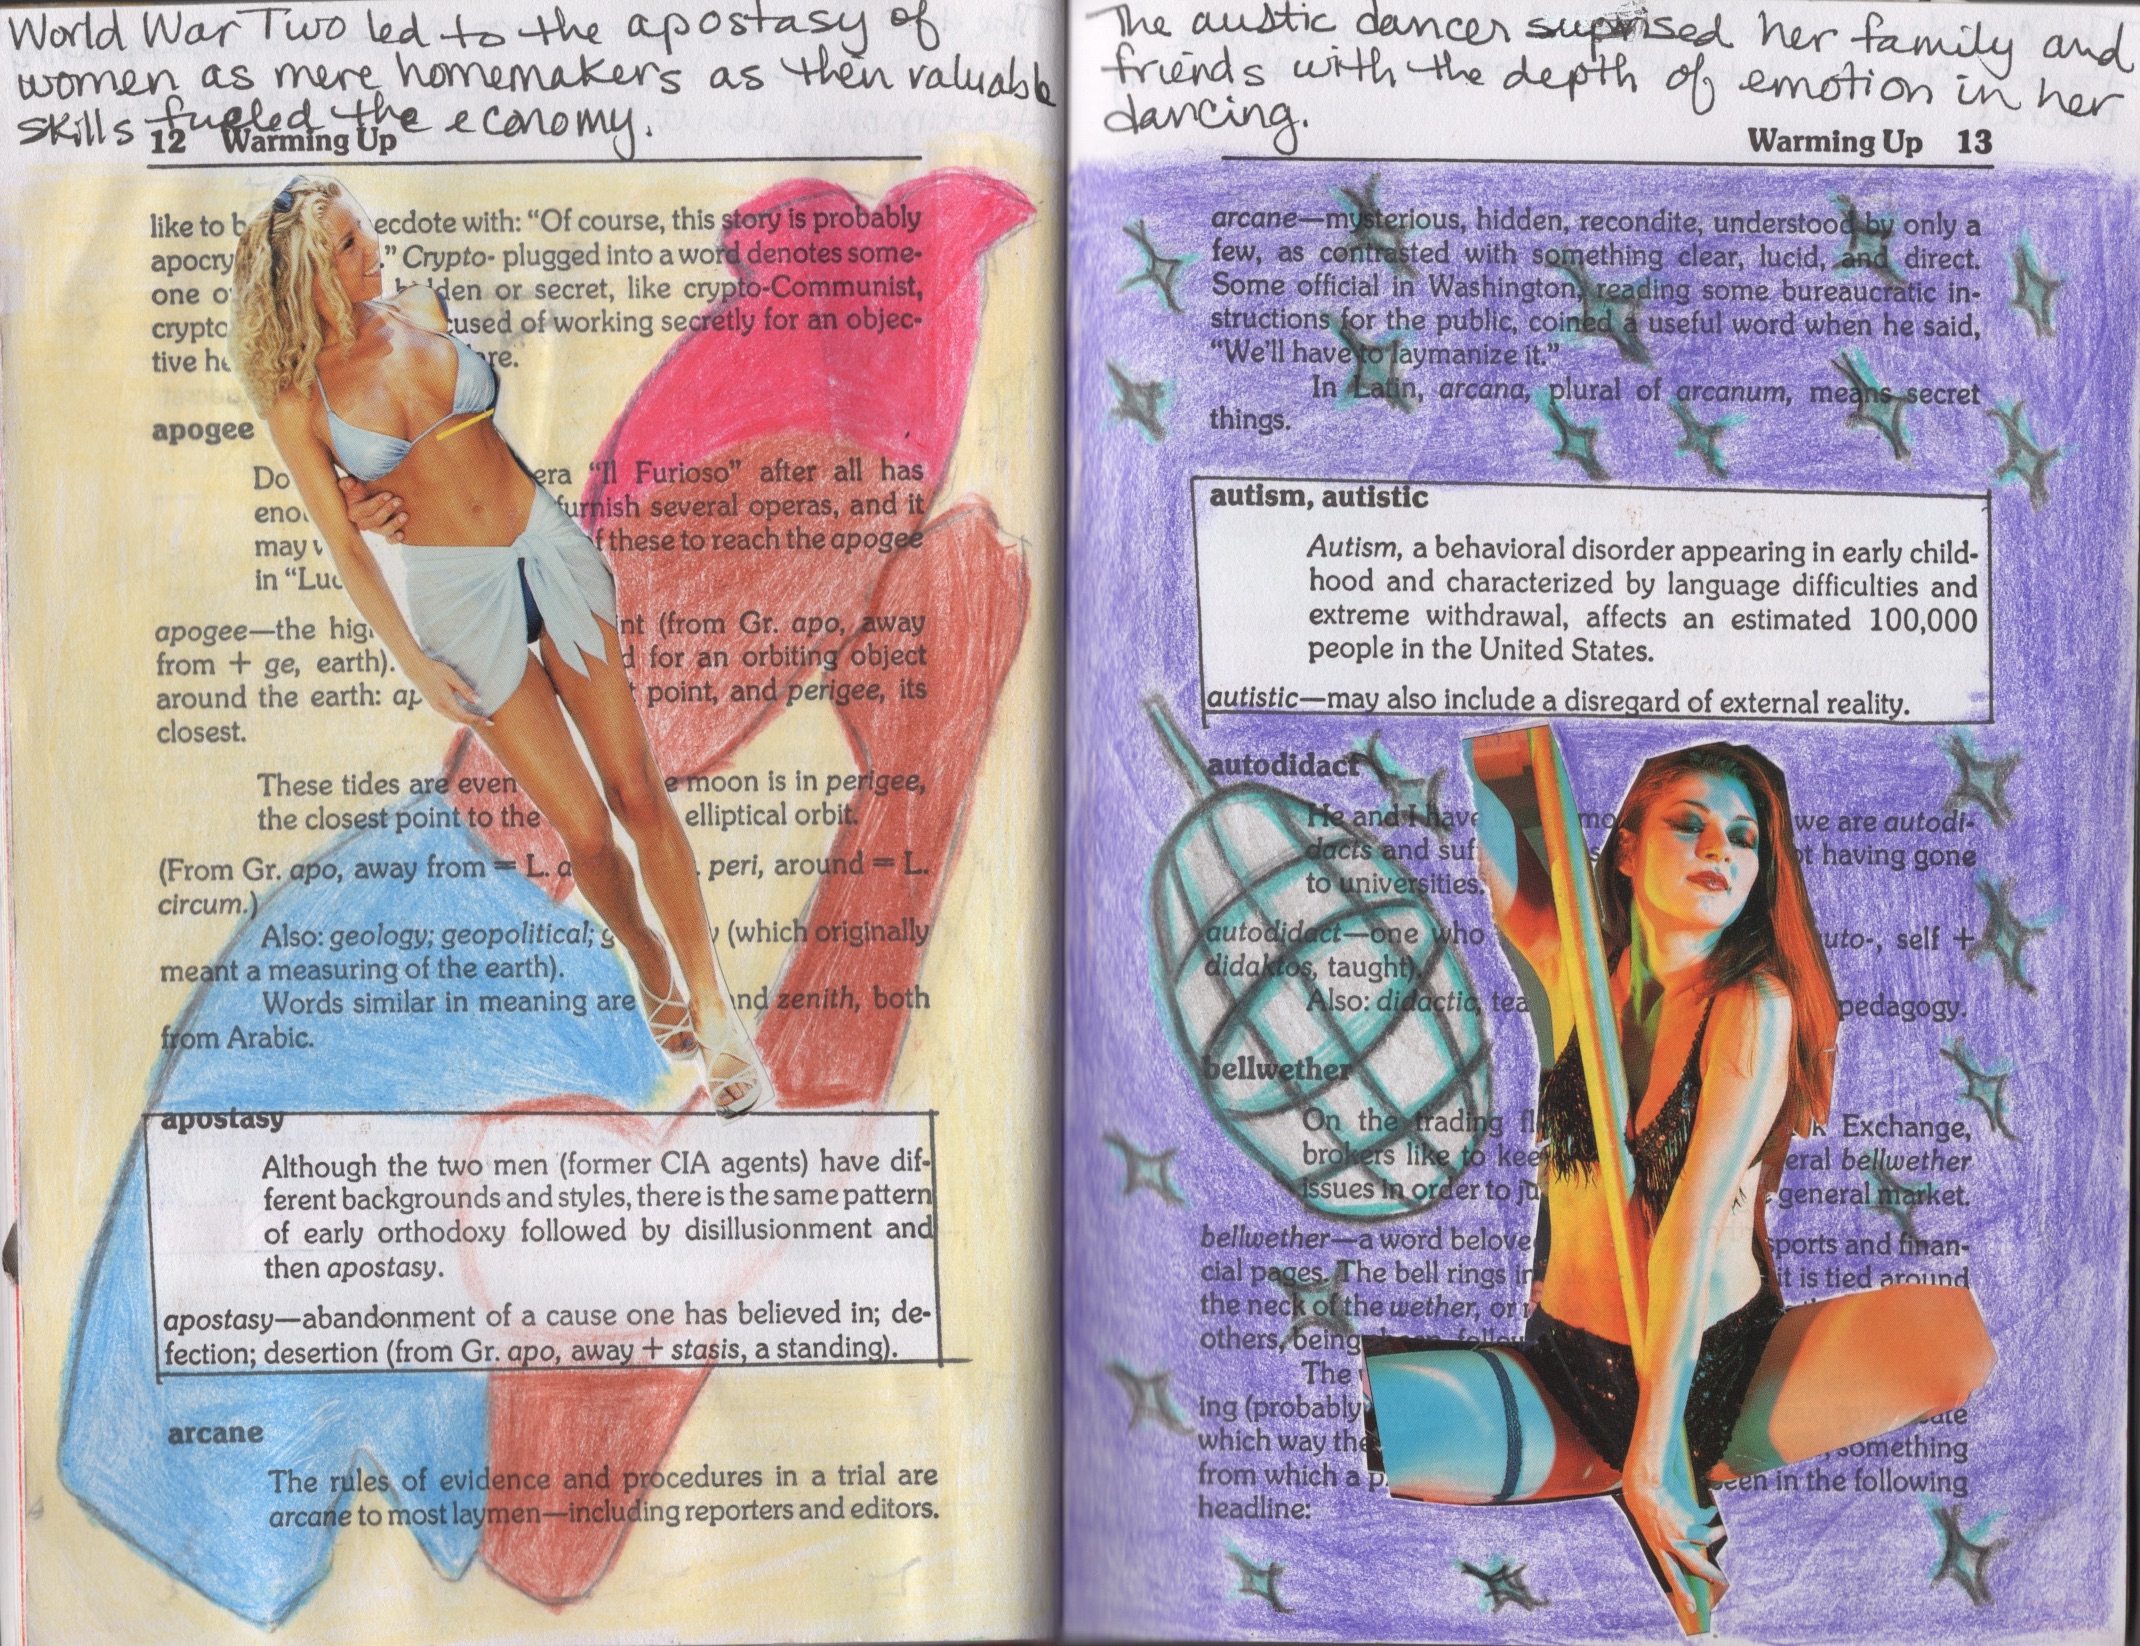 World War Two led to the apostasy of
women as mere homemakers as then valuable
skills fueled the economy.
12 Warming Up
like to b ecdote with: “Of course, this story is probably
apocry .” Crypto- plugged into a word denotes some-
one o hidden or secret, like crypto-Communist,
crypto cused of working secretly for an objec-
tive he are.
apogee
Do era “Il Furioso” after all has
enou furnish several operas, and it
may f these to reach the apogee
in “Luc
apogee—the hig nt (from Gr. apo, away
from + ge, earth). d for an orbiting object
around the earth: ap t point, and perigee, its
closest.
These tides are even e moon is in perigee,
the closest point to the elliptical orbit.
(From Gr. apo, away from = L. a . peri, around = L.
circum.)
Also: geology; geopolitical; g y (which originally
meant a measuring of the earth).
Words similar in meaning are nd zenith, both
from Arabic.
apostasy
Although the two men (former CIA agents) have dif-
ferent backgrounds and styles, there is the same pattern
of early orthodoxy followed by disillusionment and
then apostasy.
apostasy—abandonment of a cause one has believed in; de-
fection; desertion (from Gr. apo, away + stasis, a standing).
arcane
The rules of evidence and procedures in a trial are
arcane to most laymen—including reporters and editors.
The austic dancer suprised her family and
friends with the depth of emotion in her
dancing.
Warming Up 13
arcane—mysterious, hidden, recondite, understood by only a
few, as contrasted with something clear, lucid, and direct.
Some official in Washington, reading some bureaucratic in-
structions for the public, coined a useful word when he said,
“We'll have to laymanize it.”
In Latin, arcana, plural of arcanum, means secret
things.
autism, autistic
Autism, a behavioral disorder appearing in early child-
hood and characterized by language difficulties and
extreme withdrawal, affects an estimated 100,000
people in the United States.
autistic—may also include a disregard of external reality.
autodidact
He and I have mo we are autodi-
dacts and suf s ot having gone
to universities.
autodidact—one who uto-, self +
didaktos, taught).
Also: didactic, tea pedagogy.
bellwether
On the trading fl k Exchange,
brokers like to kee eral bellwether
issues in order to ju general market.
bellwether—a word belove sports and finan-
cial pages. The bell rings in it is tied around
the neck of the wether, or
others, being
The
ing (probably
which way the something
from which a p seen in the following
headline: